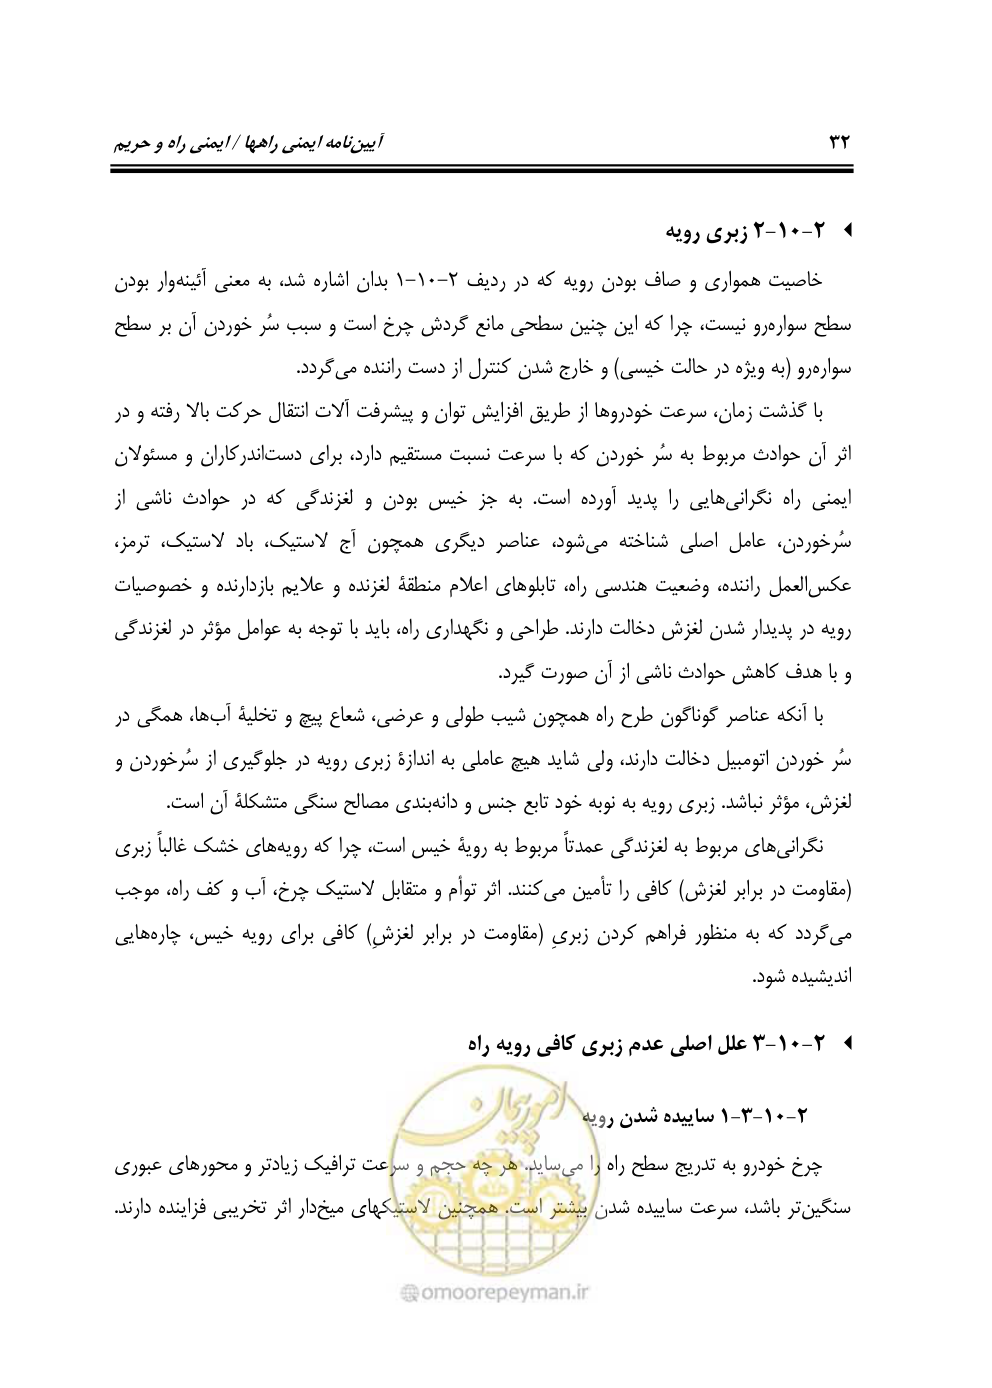 ۳۲
آیین‌نامه ایمنی راهها / ایمنی راه و حریم
۲-۱۰-۲ زبری رویه
خاصیت همواری و صاف بودن رویه که در ردیف ۲-۱۰-۱ بدان اشاره شد، به معنی آئینه‌وار بودن
سطح سواره‌رو نیست، چرا که این چنین سطحی مانع گردش چرخ است و سبب سُر خوردن آن بر سطح
سواره‌رو (به ویژه در حالت خیسی) و خارج شدن کنترل از دست راننده می‌گردد.
با گذشت زمان، سرعت خودروها از طریق افزایش توان و پیشرفت آلات انتقال حرکت بالا رفته و در
اثر آن حوادث مربوط به سُر خوردن که با سرعت نسبت مستقیم دارد، برای دست‌اندرکاران و مسئولان
ایمنی راه نگرانی‌هایی را پدید آورده است. به جز خیس بودن و لغزندگی که در حوادث ناشی از
سُرخوردن، عامل اصلی شناخته می‌شود، عناصر دیگری همچون آج لاستیک، باد لاستیک، ترمز،
عکس‌العمل راننده، وضعیت هندسی راه، تابلوهای اعلام منطقۀ لغزنده و علایم بازدارنده و خصوصیات
رویه در پدیدار شدن لغزش دخالت دارند. طراحی و نگهداری راه، باید با توجه به عوامل مؤثر در لغزندگی
و با هدف کاهش حوادث ناشی از آن صورت گیرد.
با آنکه عناصر گوناگون طرح راه همچون شیب طولی و عرضی، شعاع پیچ و تخلیۀ آب‌ها، همگی در
سُر خوردن اتومبیل دخالت دارند، ولی شاید هیچ عاملی به اندازۀ زبری رویه در جلوگیری از سُرخوردن و
لغزش، مؤثر نباشد. زبری رویه به نوبه خود تابع جنس و دانه‌بندی مصالح سنگی متشکلۀ آن است.
نگرانی‌های مربوط به لغزندگی عمدتاً مربوط به رویۀ خیس است، چرا که رویه‌های خشک غالباً زبری
(مقاومت در برابر لغزش) کافی را تأمین می‌کنند. اثر توأم و متقابل لاستیک چرخ، آب و کف راه، موجب
می‌گردد که به منظور فراهم کردن زبریِ (مقاومت در برابر لغزشِ) کافی برای رویه خیس، چاره‌هایی
اندیشیده شود.
۲-۱۰-۳ علل اصلی عدم زبری کافی رویه راه
۲-۱۰-۳-۱ ساییده شدن رویه
چرخ خودرو به تدریج سطح راه را می‌ساید. هر چه حجم و سرعت ترافیک زیادتر و محورهای عبوری
سنگین‌تر باشد، سرعت ساییده شدن بیشتر است. همچنین لاستیکهای میخ‌دار اثر تخریبی فزاینده دارند.
امور پیمان
omoorepeyman.ir